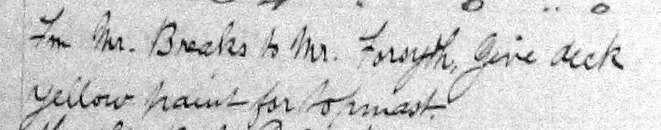 Fm Mr. Breaks to Mr. Forsyth, Give deck
yellow paint for topmast.